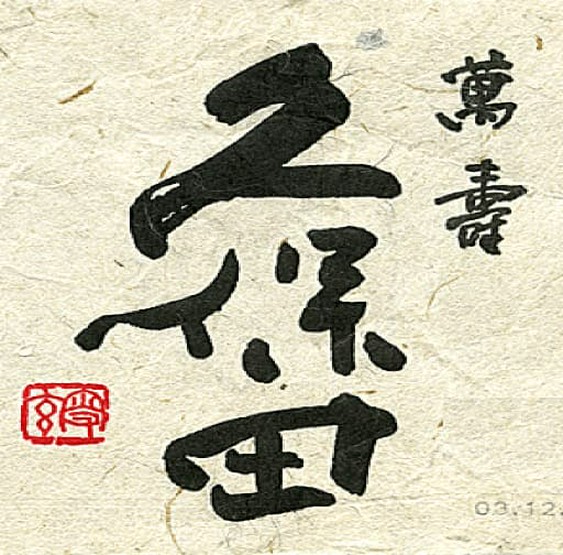 萬壽
久保田
03.12.